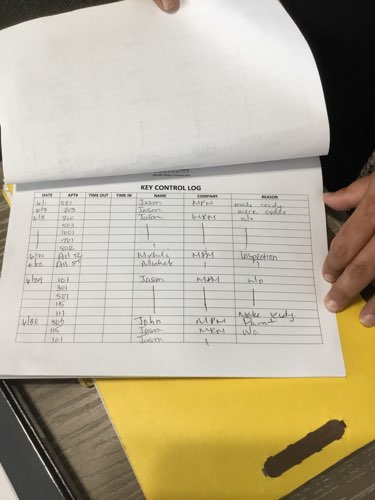 KEY CONTROL LOG
DATE APT# TIME OUT TIME IN NAME COMPANY REASON
501 Jason MPM make ready
213 Jason work order
210 Jason MPM w/o
503
1001
701
502
Michele MPM Inspection
Michele
6/29 101 Jason MPM w/o
301
501
115
111 Make Ready
6/30 John MPM Paint
115 Jason MPM w/o
101 Jason